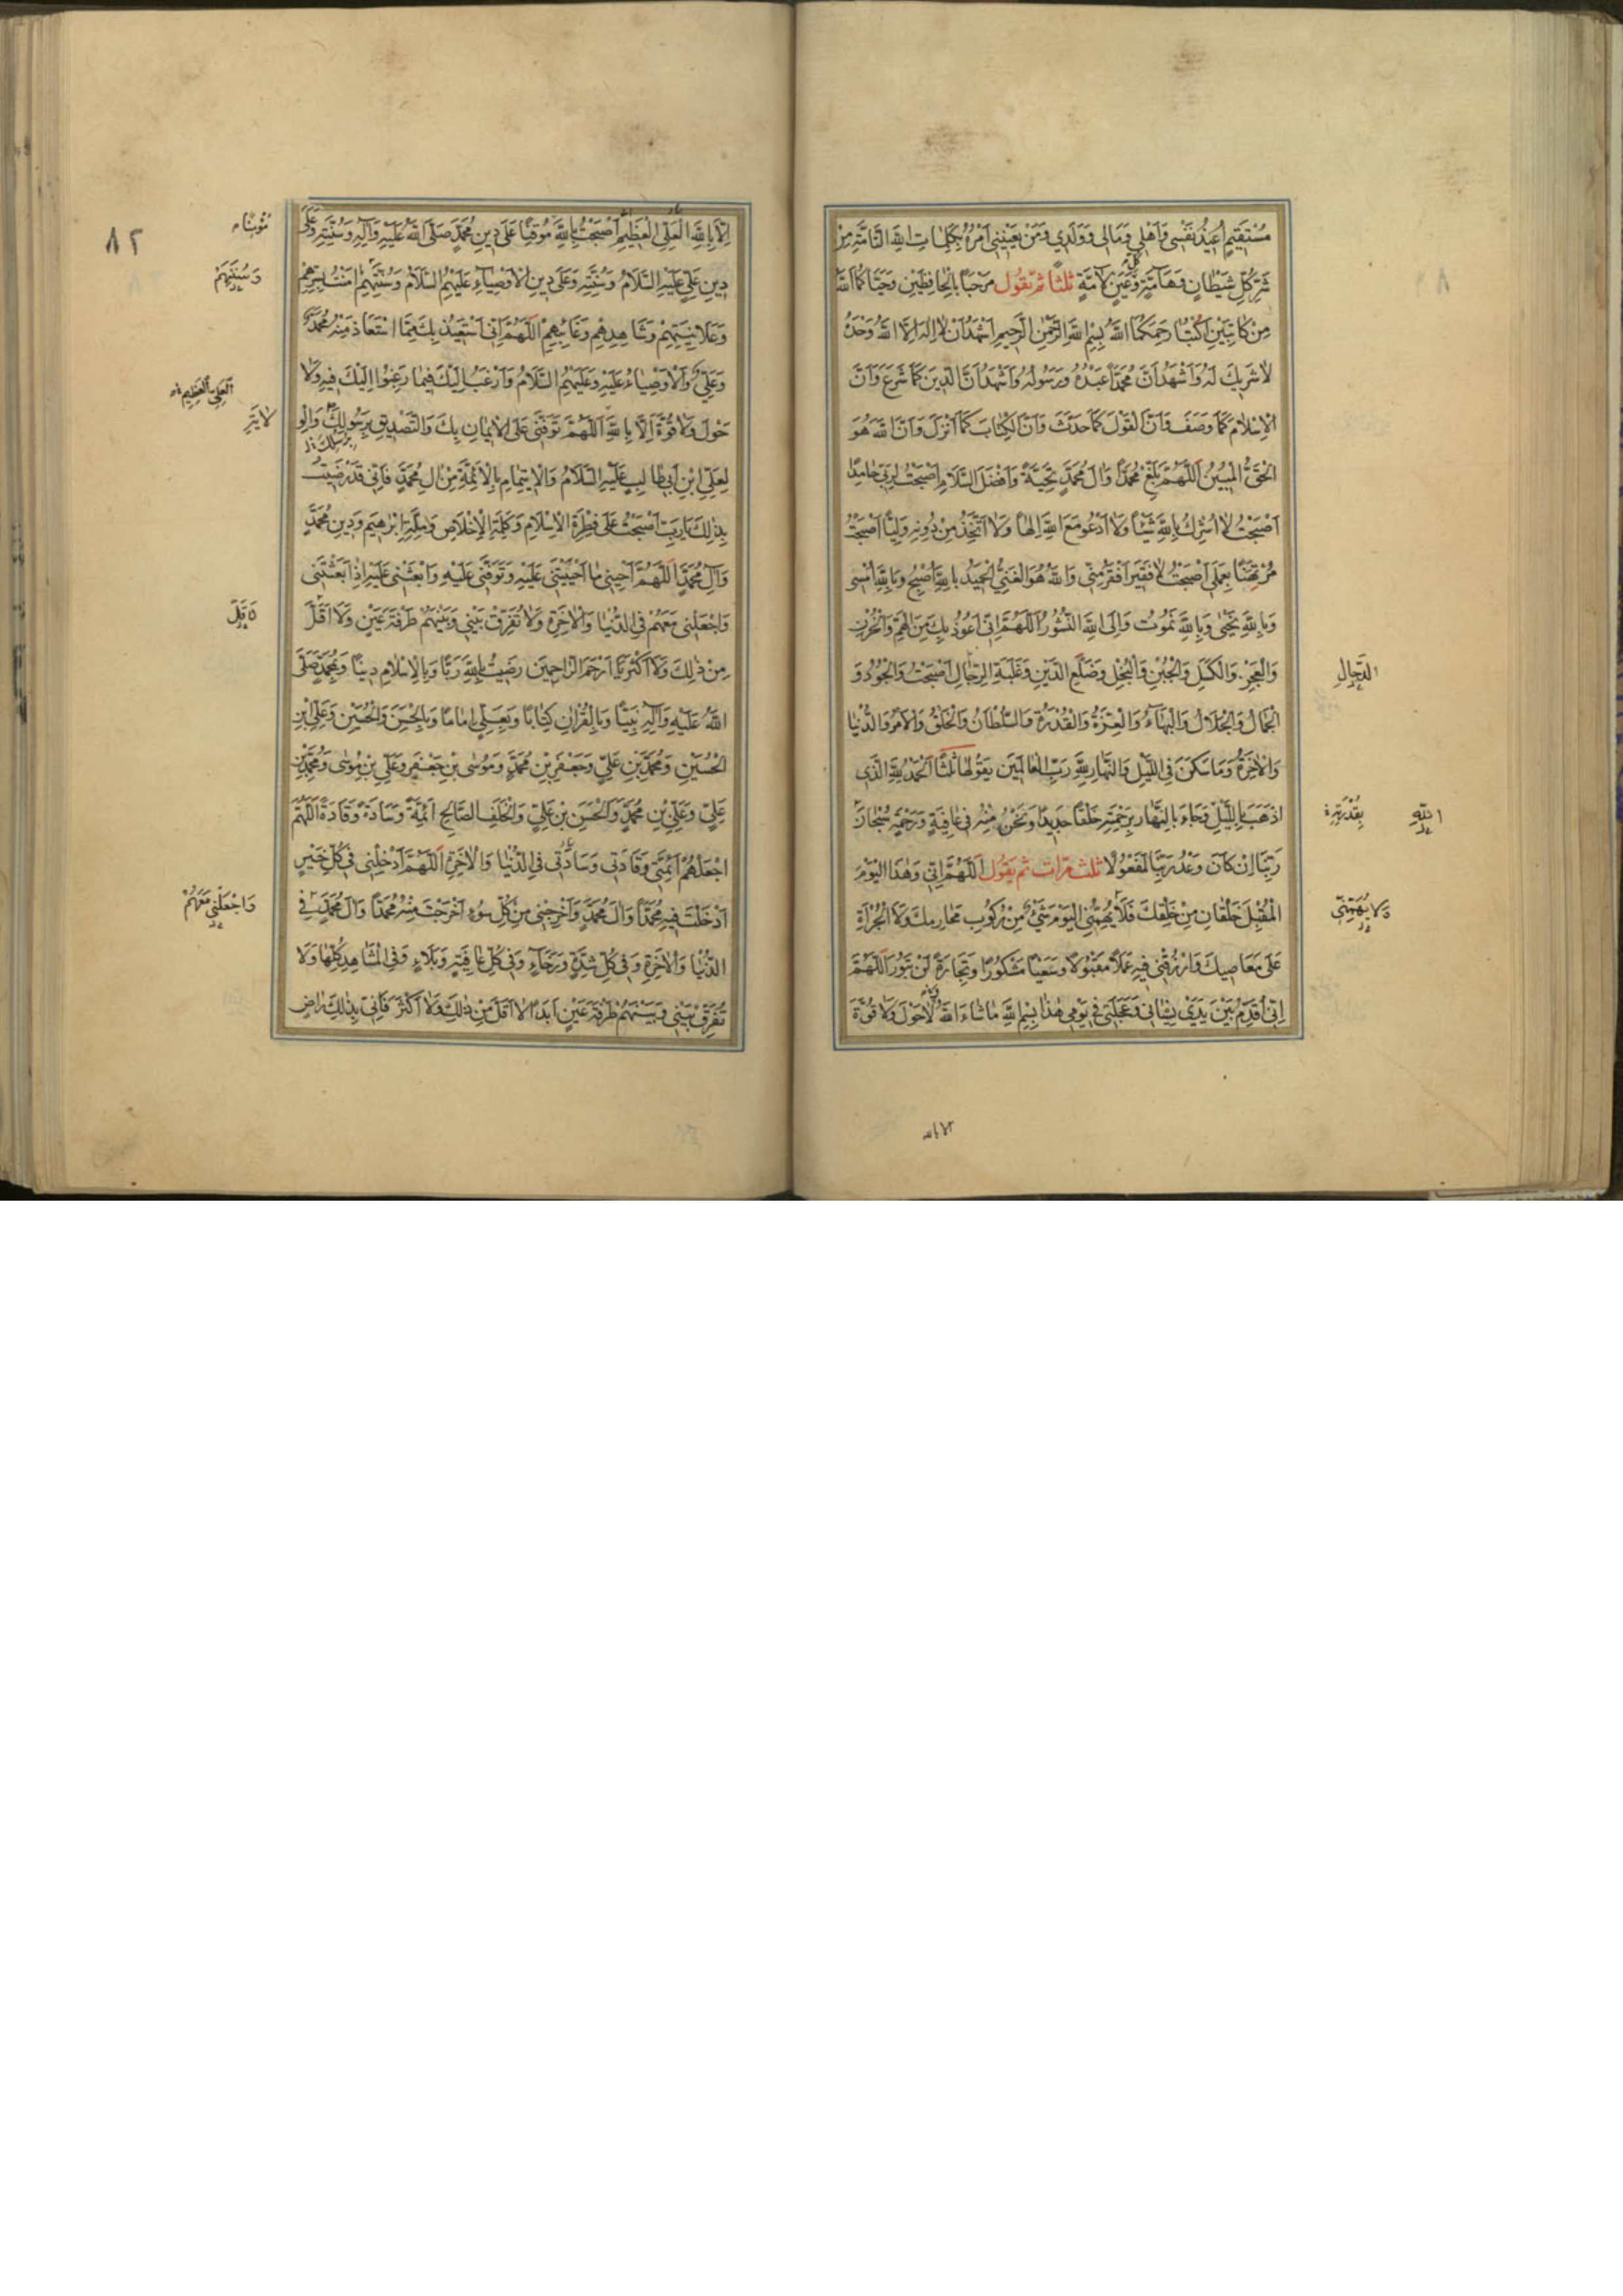 مُسْتَقيمٍ اُعيذُ نَفْسى وَاَهْلى وَمالى وَوَلَدي وَمَنْ يَعْنينى اَمْرُهُ بِكَلِماتِ اللهِ التّامَّةِ مِنْ
شَرِّ كُلِّ شَيْطانٍ وَهَامَّةٍ وَعَيْنٍ لآمَّةٍ ثلثاً ثمّ تقول مَرْحَباً بِالْحافِظَيْنِ وَحَيّاكُمَا اللهُ
مِنْ كاتِبَيْنِ اُكْتُبا رَحِمَكُمَا اللهُ بِسْمِ اللهِ الرَّحْمٰنِ الرَّحيمِ اَشْهَدُ اَنْ لا اِلٰهَ اِلَّا اللهُ وَحْدَهُ
لا شَريكَ لَهُ وَاَشْهَدُ اَنَّ مُحَمَّداً عَبْدُهُ وَرَسُولُهُ وَاَشْهَدُ اَنَّ الدّينَ كَمَا شَرَعَ وَاَنَّ
الْاِسْلامَ كَمَا وَصَفَ وَاَنَّ الْقَوْلَ كَمَا حَدَّثَ وَاَنَّ الْكِتابَ كَمَا اَنْزَلَ وَاَنَّ اللهَ هُوَ
الْحَقُّ الْمُبينُ اَللّهُمَّ بَلِّغْ مُحَمَّداً وَالَ مُحَمَّدٍ تَحِيَّةً وَاَفْضَلَ السَّلامِ اَصْبَحْتُ لِرَبّى حامِداً
اَصْبَحْتُ لا اُشْرِكُ بِاللهِ شَيْئاً وَلا اَدْعُو مَعَ اللهِ اِلٰهاً وَلا اَتَّخِذُ مِنْ دُونِهِ وَلِيّاً اَصْبَحْتُ
مُرْتَهَناً بِعَمَلى اَصْبَحْتُ لا فَقيرَ اَفْقَرُ مِنّى وَاللهُ هُوَ الْغَنِيُّ الْحَميدُ بِاللهِ اُصْبِحُ وَبِاللهِ اُمْسى
وَبِاللهِ نَحْيىٰ وَبِاللهِ نَمُوتُ وَاِلَى اللهِ النُّشُورُ اَللّهُمَّ اِنّى اَعُوذُ بِكَ مِنَ الْهَمِّ وَالْحُزْنِ
وَالْعَجْزِ وَالْكَسَلِ وَالْجُبْنِ وَالْبُخْلِ وَضَلَعِ الدَّيْنِ وَغَلَبَةِ الرِّجالِ اَصْبَحْتُ وَالْجُودُ وَ
الْجَمالُ وَالْجَلالُ وَالْبَهَاءُ وَالْعِزَّةُ وَالْقُدْرَةُ وَالسُّلْطانُ وَالْخَلْقُ وَالْاَمْرُ وَالدُّنْيا
وَالْاٰخِرَةُ وَما سَكَنَ فِى اللَّيْلِ وَالنَّهارِ لِلّهِ رَبِّ الْعالَمينَ يقولها ثلثاً اَلْحَمْدُ لِلّهِ الَّذى
اَذْهَبَ بِاللَّيْلِ وَجاءَ بِالنَّهارِ بِرَحْمَتِهِ خَلْقاً جَديداً وَنَحْنُ مِنْهُ فى عافِيَةٍ وَرَحْمَةٍ سُبْحانَ
رَبِّنا اِنْ كانَ وَعْدُ رَبِّنا لَمَفْعُولاً ثلث مرات ثم يقول اَللّهُمَّ اِنّى وَهٰذَا الْيَوْمَ
الْمُقْبِلَ خَلْقانِ مِنْ خَلْقِكَ فَلا يُهِمُّنِى الْيَوْمَ شَيْءٌ مِنْ رُكُوبِ مَحارِمِكَ وَلَا الْجُرْأَةِ
عَلىٰ مَعاصيكَ وَارْزُقْنى فيهِ عَمَلاً مَقْبُولاً وَسَعْياً مَشْكُوراً وَتِجارَةً لَنْ تَبُورَ اَللّهُمَّ
اِنّى اُقَدِّمُ بَيْنَ يَدَىْ نِسْيانى وَعَجَلَتى فى يَوْمى هٰذا بِسْمِ اللهِ ما شاءَ اللهُ لا حَوْلَ وَلا قُوَّةَ
الدَّجّالِ
اللّهِ
بِقُدْرَتِهِ
وَلا يُهِمَّنّى
الا بالله
اِلّا بِاللهِ الْعَلِىِّ الْعَظيمِ اَصْبَحْتُ بِاللهِ مُوقِناً عَلىٰ دينِ مُحَمَّدٍ صَلَّى اللهُ عَلَيْهِ وَآلِهِ وَسُنَّتِهِ وَعَلىٰ
دينِ عَلِىٍّ عَلَيْهِ السَّلامُ وَسُنَّتِهِ وَعَلىٰ دينِ الْاَوْصِياءِ عَلَيْهِمُ السَّلامُ وَسُنَّتِهِمْ اٰمَنْتُ بِسِرِّهِمْ
وَعَلانِيَتِهِمْ وَشاهِدِهِمْ وَغائِبِهِمْ اَللّهُمَّ اِنّى اَسْتَعيذُ بِكَ مِمَّا اسْتَعاذَ مِنْهُ مُحَمَّدٌ
وَعَلِيٌّ وَالْاَوْصِياءُ عَلَيْهِ وَعَلَيْهِمُ السَّلامُ وَاَرْغَبُ اِلَيْكَ فيما رَغِبُوا اِلَيْكَ فيهِ وَلا
حَوْلَ وَلا قُوَّةَ اِلّا بِاللهِ اَللّهُمَّ تَوَفَّنى عَلَى الْايمانِ بِكَ وَالتَّصْديقِ بِرَسُولِكَ وَالْوِ
لِعَلِىِّ ابْنِ اَبيطالِبٍ عَلَيْهِ السَّلامُ وَالْايتِمامِ بِالْاَئِمَّةِ مِنْ الِ مُحَمَّدٍ فَاِنّى قَدْ رَضيتُ
بِذٰلِكَ يا رَبِّ اَصْبَحْتُ عَلىٰ فِطْرَةِ الْاِسْلامِ وَكَلِمَةِ الْاِخْلاصِ وَمِلَّةِ اِبْرٰهيمَ وَدينِ مُحَمَّدٍ
وَآلِ مُحَمَّدٍ اَللّهُمَّ اَحْيِنى ما اَحْيَيْتَنى عَلَيْهِ وَتَوَفَّنى عَلَيْهِ وَابْعَثْنى عَلَيْهِ اِذا بَعَثْتَنى
وَاجْعَلْنى مَعَهُمْ فِى الدُّنْيا وَالْاٰخِرَةِ وَلا تُفَرِّقْ بَيْنى وَبَيْنَهُمْ طَرْفَةَ عَيْنٍ وَلا اَقَلَّ
مِنْ ذٰلِكَ وَلا اَكْثَرَ يا اَرْحَمَ الرّاحِمينَ رَضيتُ بِاللهِ رَبّاً وَبِالْاِسْلامِ ديناً وَبِمُحَمَّدٍ صَلَّى
اللهُ عَلَيْهِ وَآلِهِ نَبِيّاً وَبِالْقُرْاٰنِ كِتاباً وَبِعَلِىٍّ اِماماً وَبِالْحَسَنِ وَالْحُسَيْنِ وَعَلِىِّ ابْنِ
الْحُسَيْنِ وَمُحَمَّدِ بْنِ عَلِيٍّ وَجَعْفَرِ بْنِ مُحَمَّدٍ وَمُوسَى بْنِ جَعْفَرٍ وَعَلِيِّ بْنِ مُوسىٰ وَمُحَمَّدِ بْنِ
عَلِيٍّ وَعَلِيِّ بْنِ مُحَمَّدٍ وَالْحَسَنِ بْنِ عَلِيٍّ وَالْخَلَفِ الصّالِحِ اَئِمَّةً وَسادَةً وَقادَةً اَللّهُمَّ
اجْعَلْهُمْ اَئِمَّتى وَقادَتى وَسادَتى فِى الدُّنْيا وَالْاٰخِرَةِ اَللّهُمَّ اَدْخِلْنى فى كُلِّ خَيْرٍ
اَدْخَلْتَ فيهِ مُحَمَّداً وَالَ مُحَمَّدٍ وَاَخْرِجْنى مِنْ كُلِّ سُوءٍ اَخْرَجْتَ مِنْهُ مُحَمَّداً وَالَ مُحَمَّدٍ فى
الدُّنْيا وَالْاٰخِرَةِ وَفى كُلِّ شِدَّةٍ وَرَخاءٍ وَفى كُلِّ عافِيَةٍ وَبَلاءٍ وَفِى الْمَشاهِدِ كُلِّها وَلا
تُفَرِّقْ بَيْنى وَبَيْنَهُمْ طَرْفَةَ عَيْنٍ اَبَداً لا اَقَلَّ مِنْ ذٰلِكَ وَلا اَكْثَرَ فَاِنّى بِذٰلِكَ راضٍ
٨٢
وَسُنَّتِهِمْ
اَلْعَلِىِّ الْعَظيمِ
لايَةِ
وَاجْعَلْنى مَعَهُمْ